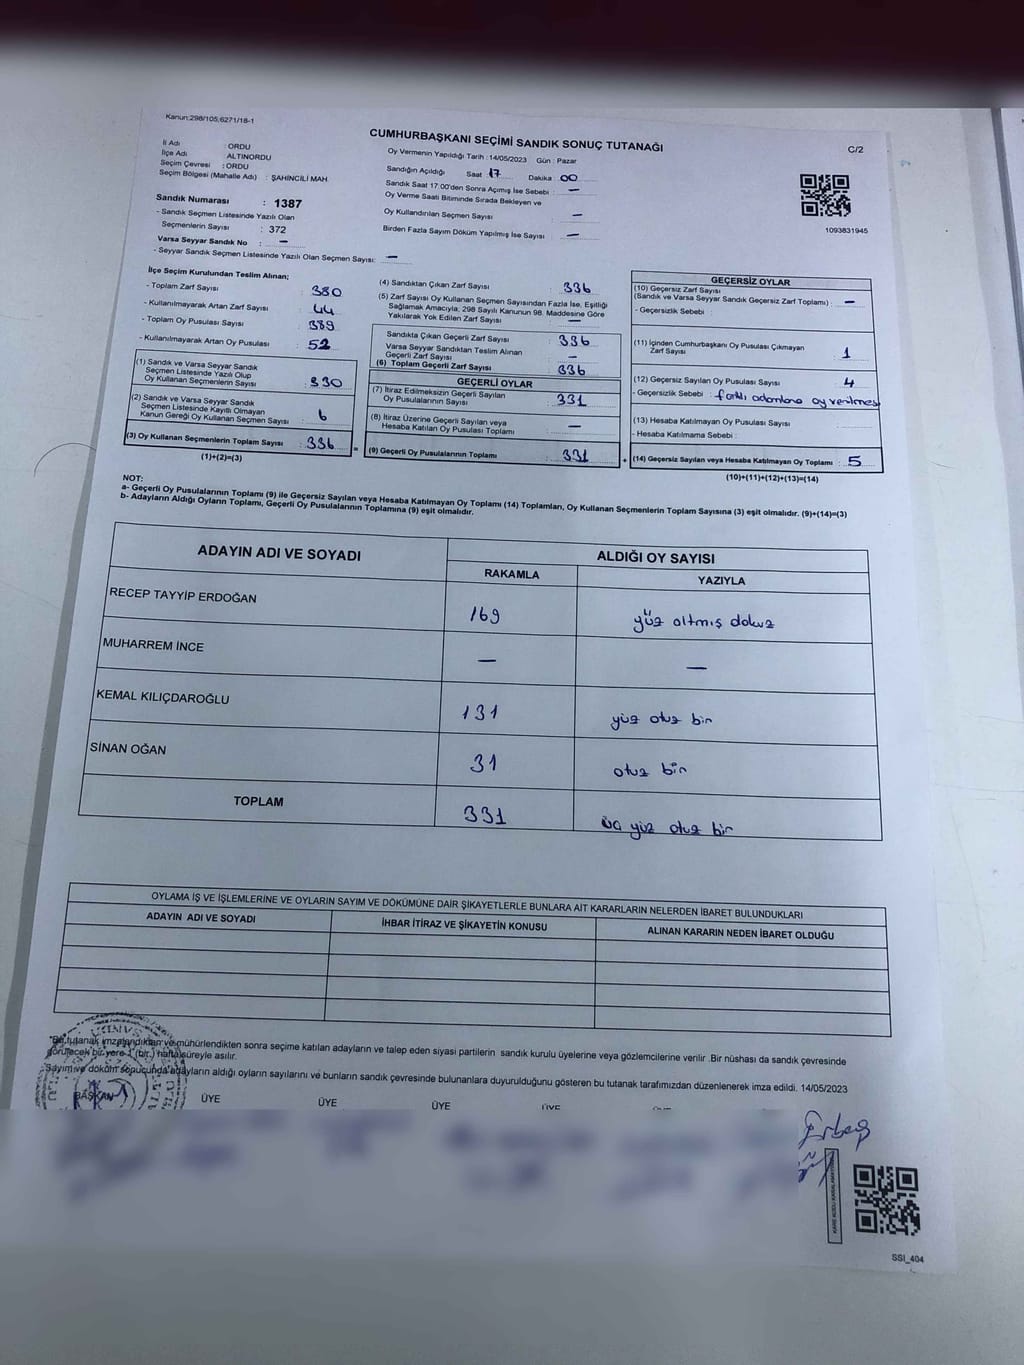 Kanun:298/105,6271/18-1
CUMHURBAŞKANI SEÇİMİ SANDIK SONUÇ TUTANAĞI
C/2
İl Adı : ORDU
İlçe Adı : ALTINORDU
Seçim Çevresi : ORDU
Seçim Bölgesi (Mahalle Adı) : ŞAHİNCİLİ MAH.
Sandık Numarası : 1387
- Sandık Seçmen Listesinde Yazılı Olan
Seçmenlerin Sayısı : 372
Varsa Seyyar Sandık No : —
- Seyyar Sandık Seçmen Listesinde Yazılı Olan Seçmen Sayısı: —
Oy Vermenin Yapıldığı Tarih : 14/05/2023 Gün : Pazar
Sandığın Açıldığı Saat : 17 Dakika : 00
Sandık Saat 17:00'den Sonra Açımış İse Sebebi : —
Oy Verme Saati Bitiminde Sırada Bekleyen ve
Oy Kullandırılan Seçmen Sayısı —
Birden Fazla Sayım Döküm Yapılmış İse Sayısı : —
1093831945
İlçe Seçim Kurulundan Teslim Alınan;
- Toplam Zarf Sayısı : 380
- Kullanılmayarak Artan Zarf Sayısı : 44
- Toplam Oy Pusulası Sayısı : 389
- Kullanılmayarak Artan Oy Pusulası : 52
(1) Sandık ve Varsa Seyyar Sandık
Seçmen Listesinde Yazılı Olup
Oy Kullanan Seçmenlerin Sayısı : 330
(2) Sandık ve Varsa Seyyar Sandık
Seçmen Listesinde Kayıtlı Olmayan
Kanun Gereği Oy Kullanan Seçmen Sayısı : 6
(3) Oy Kullanan Seçmenlerin Toplam Sayısı : 336
(1)+(2)=(3)
(4) Sandıktan Çıkan Zarf Sayısı : 336
(5) Zarf Sayısı Oy Kullanan Seçmen Sayısından Fazla İse, Eşitliği
Sağlamak Amacıyla; 298 Sayılı Kanunun 98. Maddesine Göre
Yakılarak Yok Edilen Zarf Sayısı : —
Sandıkta Çıkan Geçerli Zarf Sayısı : 336
Varsa Seyyar Sandıktan Teslim Alınan
Geçerli Zarf Sayısı : —
(6) Toplam Geçerli Zarf Sayısı : 336
GEÇERLİ OYLAR
(7) İtiraz Edilmeksizin Geçerli Sayılan
Oy Pusulalarının Sayısı : 331
(8) İtiraz Üzerine Geçerli Sayılan veya
Hesaba Katılan Oy Pusulası Toplamı : —
(9) Geçerli Oy Pusulalarının Toplamı : 331
GEÇERSİZ OYLAR
(10) Geçersiz Zarf Sayısı
(Sandık ve Varsa Seyyar Sandık Geçersiz Zarf Toplamı) : —
- Geçersizlik Sebebi :
(11) İçinden Cumhurbaşkanı Oy Pusulası Çıkmayan
Zarf Sayısı : 1
(12) Geçersiz Sayılan Oy Pusulası Sayısı : 4
- Geçersizlik Sebebi : farklı adamlara oy verilmesi
(13) Hesaba Katılmayan Oy Pusulası Sayısı :
- Hesaba Katılmama Sebebi :
(14) Geçersiz Sayılan veya Hesaba Katılmayan Oy Toplamı : 5
(10)+(11)+(12)+(13)=(14)
NOT:
a- Geçerli Oy Pusulalarının Toplamı (9) ile Geçersiz Sayılan veya Hesaba Katılmayan Oy Toplamı (14) Toplamları, Oy Kullanan Seçmenlerin Toplam Sayısına (3) eşit olmalıdır. (9)+(14)=(3)
b- Adayların Aldığı Oyların Toplamı, Geçerli Oy Pusulalarının Toplamına (9) eşit olmalıdır.
ADAYIN ADI VE SOYADI ALDIĞI OY SAYISI
RAKAMLA YAZIYLA
RECEP TAYYİP ERDOĞAN 169 yüz altmış dokuz
MUHARREM İNCE — —
KEMAL KILIÇDAROĞLU 131 yüz otuz bir
SİNAN OĞAN 31 otuz bir
TOPLAM 331 üç yüz otuz bir
OYLAMA İŞ VE İŞLEMLERİNE VE OYLARIN SAYIM VE DÖKÜMÜNE DAİR ŞİKAYETLERLE BUNLARA AİT KARARLARIN NELERDEN İBARET BULUNDUKLARI
ADAYIN ADI VE SOYADI İHBAR İTİRAZ VE ŞİKAYETİN KONUSU ALINAN KARARIN NEDEN İBARET OLDUĞU
*Bu tutanak imzalandıktan ve mühürlendikten sonra seçime katılan adayların ve talep eden siyasi partilerin sandık kurulu üyelerine veya gözlemcilerine verilir .Bir nüshası da sandık çevresinde
görülecek bir yere 1 (bir.) hafta süreyle asılır.
Sayım ve döküm sonucunda adayların aldığı oyların sayılarını ve bunların sandık çevresinde bulunanlara duyurulduğunu gösteren bu tutanak tarafımızdan düzenlenerek imza edildi. 14/05/2023
BAŞKAN ÜYE ÜYE ÜYE ÜYE
Erbaş
SSI_404